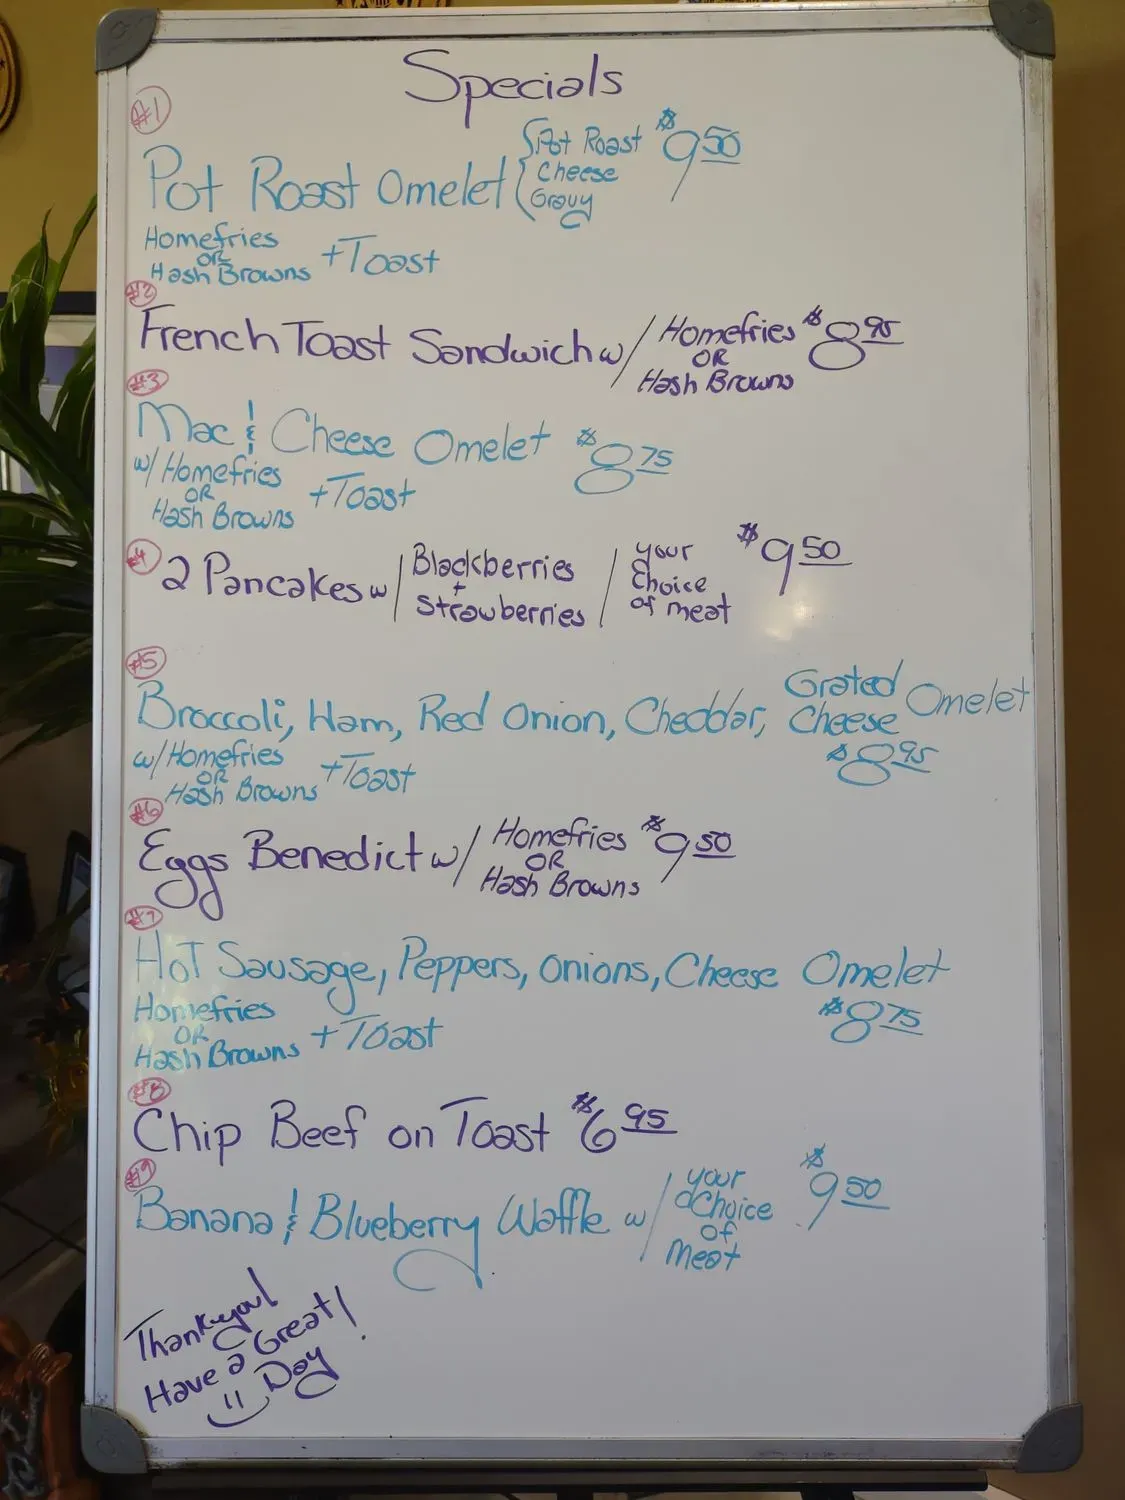 Specials
#1
Pot Roast Omelet { Pot Roast $9.50
Cheese
Gravy
Homefries
OR + Toast
Hash Browns
#2
French Toast Sandwich w/ Homefries $8.95
OR
Hash Browns
#3
Mac & Cheese Omelet $8.75
w/ Homefries
OR + Toast
Hash Browns
#4
2 Pancakes w/ Blackberries / your $9.50
+ Choice
Strawberries of meat
#5
Broccoli, Ham, Red Onion, Cheddar, Grated Cheese Omelet
$8.95
w/ Homefries
OR + Toast
Hash Browns
#6
Eggs Benedict w/ Homefries $9.50
OR
Hash Browns
#7
Hot Sausage, Peppers, Onions, Cheese Omelet
$8.75
Homefries
OR + Toast
Hash Browns
#8
Chip Beef on Toast $6.95
#9
Banana & Blueberry Waffle w/ your $9.50
Choice
of
Meat
Thank you!
Have a Great!
Day